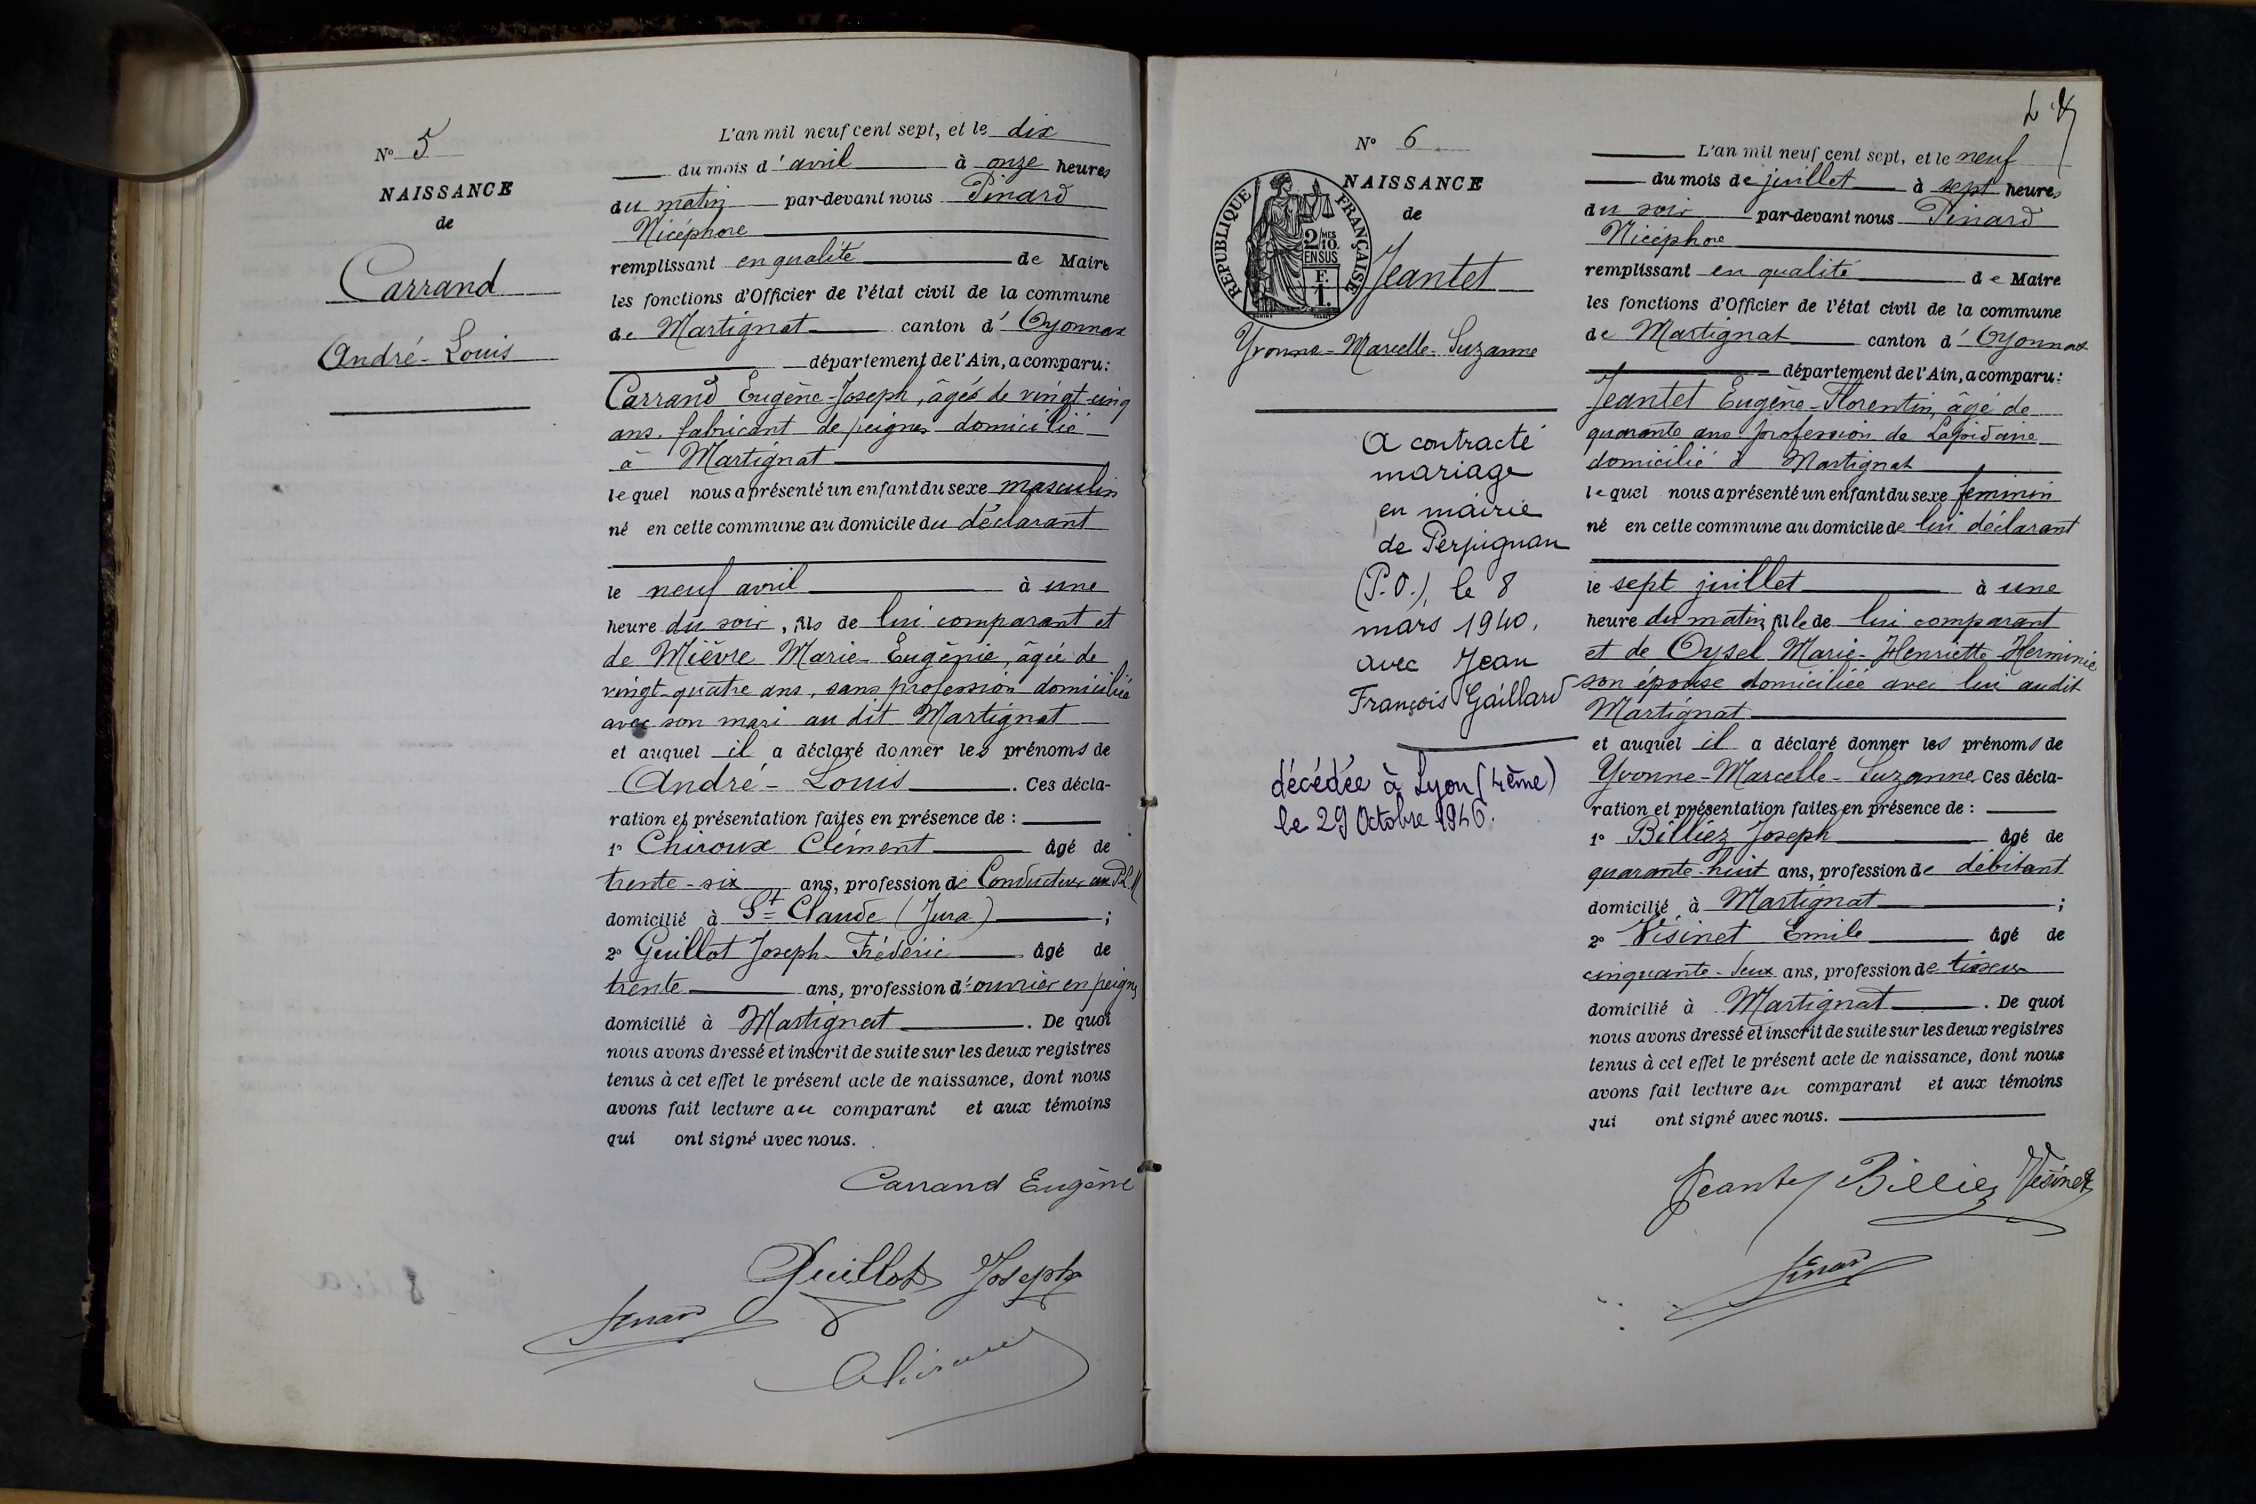 N° 5
NAISSANCE
de
Carrand
André-Louis
L'an mil neuf cent sept, et le dix
du mois d'avril à onze heures
du matin par-devant nous Pinard
Nicéphore
remplissant en qualité de Maire
les fonctions d'Officier de l'état civil de la commune
de Martignat canton d'Oyonnax
département de l'Ain, a comparu:
Carrand Eugène-Joseph, âgés de vingt-cinq
ans, fabricant de peignes domicilié
à Martignat
lequel nous a présenté un enfant du sexe masculin
né en cette commune au domicile du déclarant
le neuf avril à une
heure du soir, fils de lui comparant et
de Mièvre Marie-Eugénie, âgée de
vingt-quatre ans, sans profession domiciliée
avec son mari au dit Martignat
et auquel il a déclaré donner les prénoms de
André-Louis. Ces décla-
ration et présentation faites en présence de :
1° Chiroux Clément âgé de
trente-six ans, profession de Conducteur au PLM
domicilié à St Claude (Jura) ;
2° Guillot Joseph-Frédéric âgé de
trente ans, profession d'ouvrier en peignes
domicilié à Martignat. De quoi
nous avons dressé et inscrit de suite sur les deux registres
tenus à cet effet le présent acte de naissance, dont nous
avons fait lecture au comparant et aux témoins
qui ont signé avec nous.
Carrand Eugène
Guillot Joseph
Pinard
Chiroux
N° 6
NAISSANCE
de
RÉPUBLIQUE FRANÇAISE
2/10 MES
EN SUS
F.
1.
Jeantet
Yvonne-Marcelle-Suzanne
A contracté
mariage
en mairie
de Perpignan
(P.O.), le 8
mars 1940,
avec Jean
François Gaillard
décédée à Lyon (4ème)
le 29 Octobre 1946.
L'an mil neuf cent sept, et le neuf
du mois de juillet à sept heures
du soir par-devant nous Pinard
Nicéphore
remplissant en qualité de Maire
les fonctions d'Officier de l'état civil de la commune
de Martignat canton d'Oyonnax
département de l'Ain, a comparu:
Jeantet Eugène-Florentin, âgé de
quarante ans profession de Lapidaire
domicilié à Martignat
lequel nous a présenté un enfant du sexe féminin
né en cette commune au domicile de lui déclarant
le sept juillet à une
heure du matin, fille de lui comparant
et de Oysel Marie-Henriette-Herminie
son épouse domiciliée avec lui audit
Martignat
et auquel il a déclaré donner les prénoms de
Yvonne-Marcelle-Suzanne Ces décla-
ration et présentation faites en présence de :
1° Billiez Joseph âgé de
quarante-huit ans, profession de débitant
domicilié à Martignat ;
2° Visinet Emile âgé de
cinquante-deux ans, profession de tisseur
domicilié à Martignat. De quoi
nous avons dressé et inscrit de suite sur les deux registres
tenus à cet effet le présent acte de naissance, dont nous
avons fait lecture au comparant et aux témoins
qui ont signé avec nous.
Jeantet Billiez Visinet
Pinard